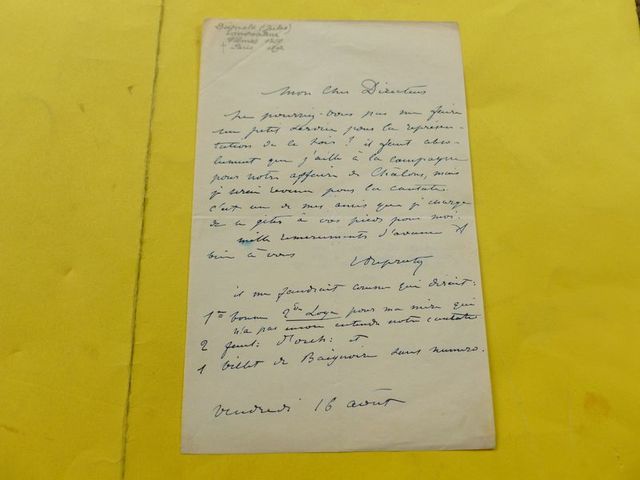 (Jules)
Compositeur
Nîmes
† Paris
Mon Cher Directeur
Ne pourriez-vous pas me faire
un petit service pour la représen-
tation de ce soir ? il faut abso-
lument que j'aille à la campagne
pour notre affaire de Châlons, mais
je serai revenu pour la cantate
c'est un de mes amis que je charge
de se jeter à vos pieds pour moi.
mille remerciments d'avance &
bien à vous
il me faudrait comme qui dirait :
1re bonne 2de Loge pour ma mère qui
n'a pas encore entendu notre cantate
2 faut: d'orch: et
1 billet de Baignoire sans numéro.
Vendredi 16 août